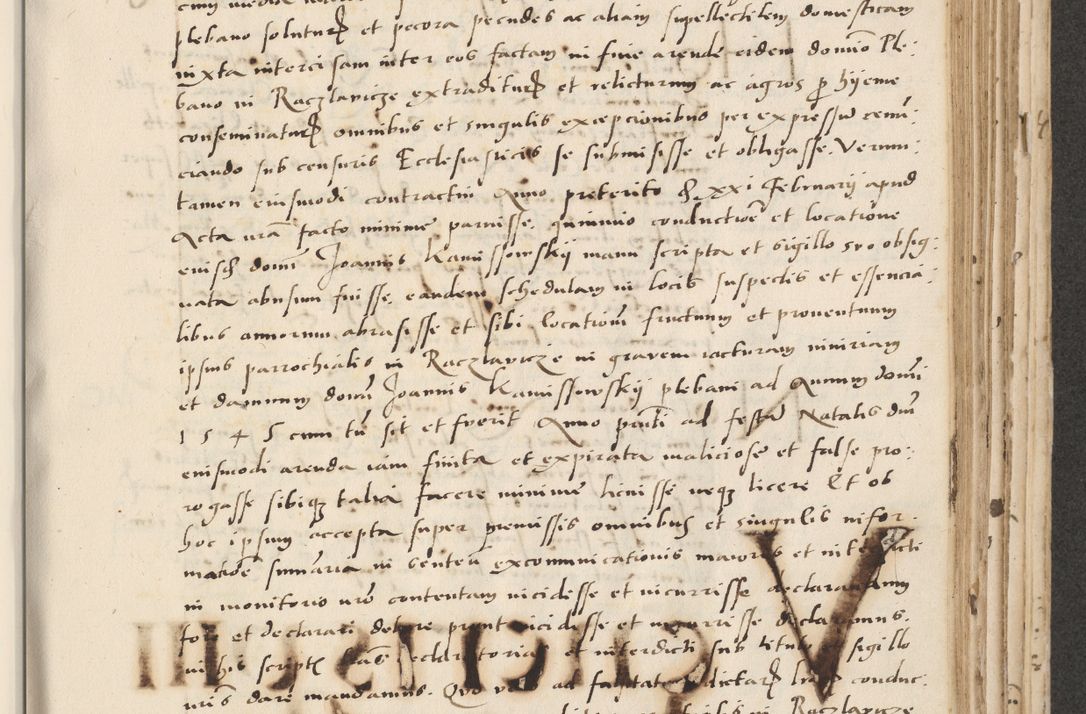 plebano soluturum et pecora pecudes ac aliam supellectilem domesticam
iuxta intercisam inter eos factam in fine arende eidem domino Ple:
bano in Raczlavicze extraditurum et relicturum ac agros pro hyeme
conseminaturum omnibus et singulis excepcionibus per expressum renun:
ciando sub censuris Ecclesiasticis se submisisse et obligasse. Verum:
tamen eiusmodi contractui Anno preterito xxi Februarii apud
Acta nostra facto minime paruisse, quinimo conductione et locatione
eiusdem domini Joannis Kamissowskij manu scripta et sigillo suo obsig:
nata abusum fuisse, eandem schedulam in locis suspectis et essencia:
libus annorum abrasisse et sibi locationem fructuum et prouentuum
ipsius parrochialis in Raczlavicze in gravem iacturam iniuriam
et damnum domini Joannis Kamissowskij plebani ad Annum domini
1545 cum tamen sit et fuerit Anno presenti ad festum Natalis domini
eiusmodi arenda iam finita et expirata maliciose et false pro:
rogasse sibique talia facere minime licuisse neque licere Et ob
hoc ipsum accepta super premissis omnibus et singulis infor:
matione summaria in sententiam excommunicationis maioris et interdicti
in monitorio nostro contentam incidisse et incurrisse declarandum
fore et declarari debere prout incidisse et incurrisse declaramus.
in his scriptis has declaratorias et interdicti sub titulo et sigillo
nostris dari mandamus. Quo vero ad falsitatem dictarum conduc: